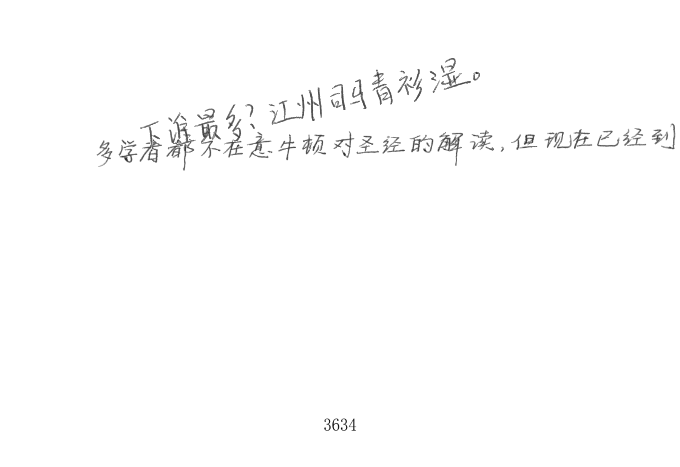 下谁最多？江州司马青衫湿。
多学者都不在意牛顿对圣经的解读，但现在已经到
3634